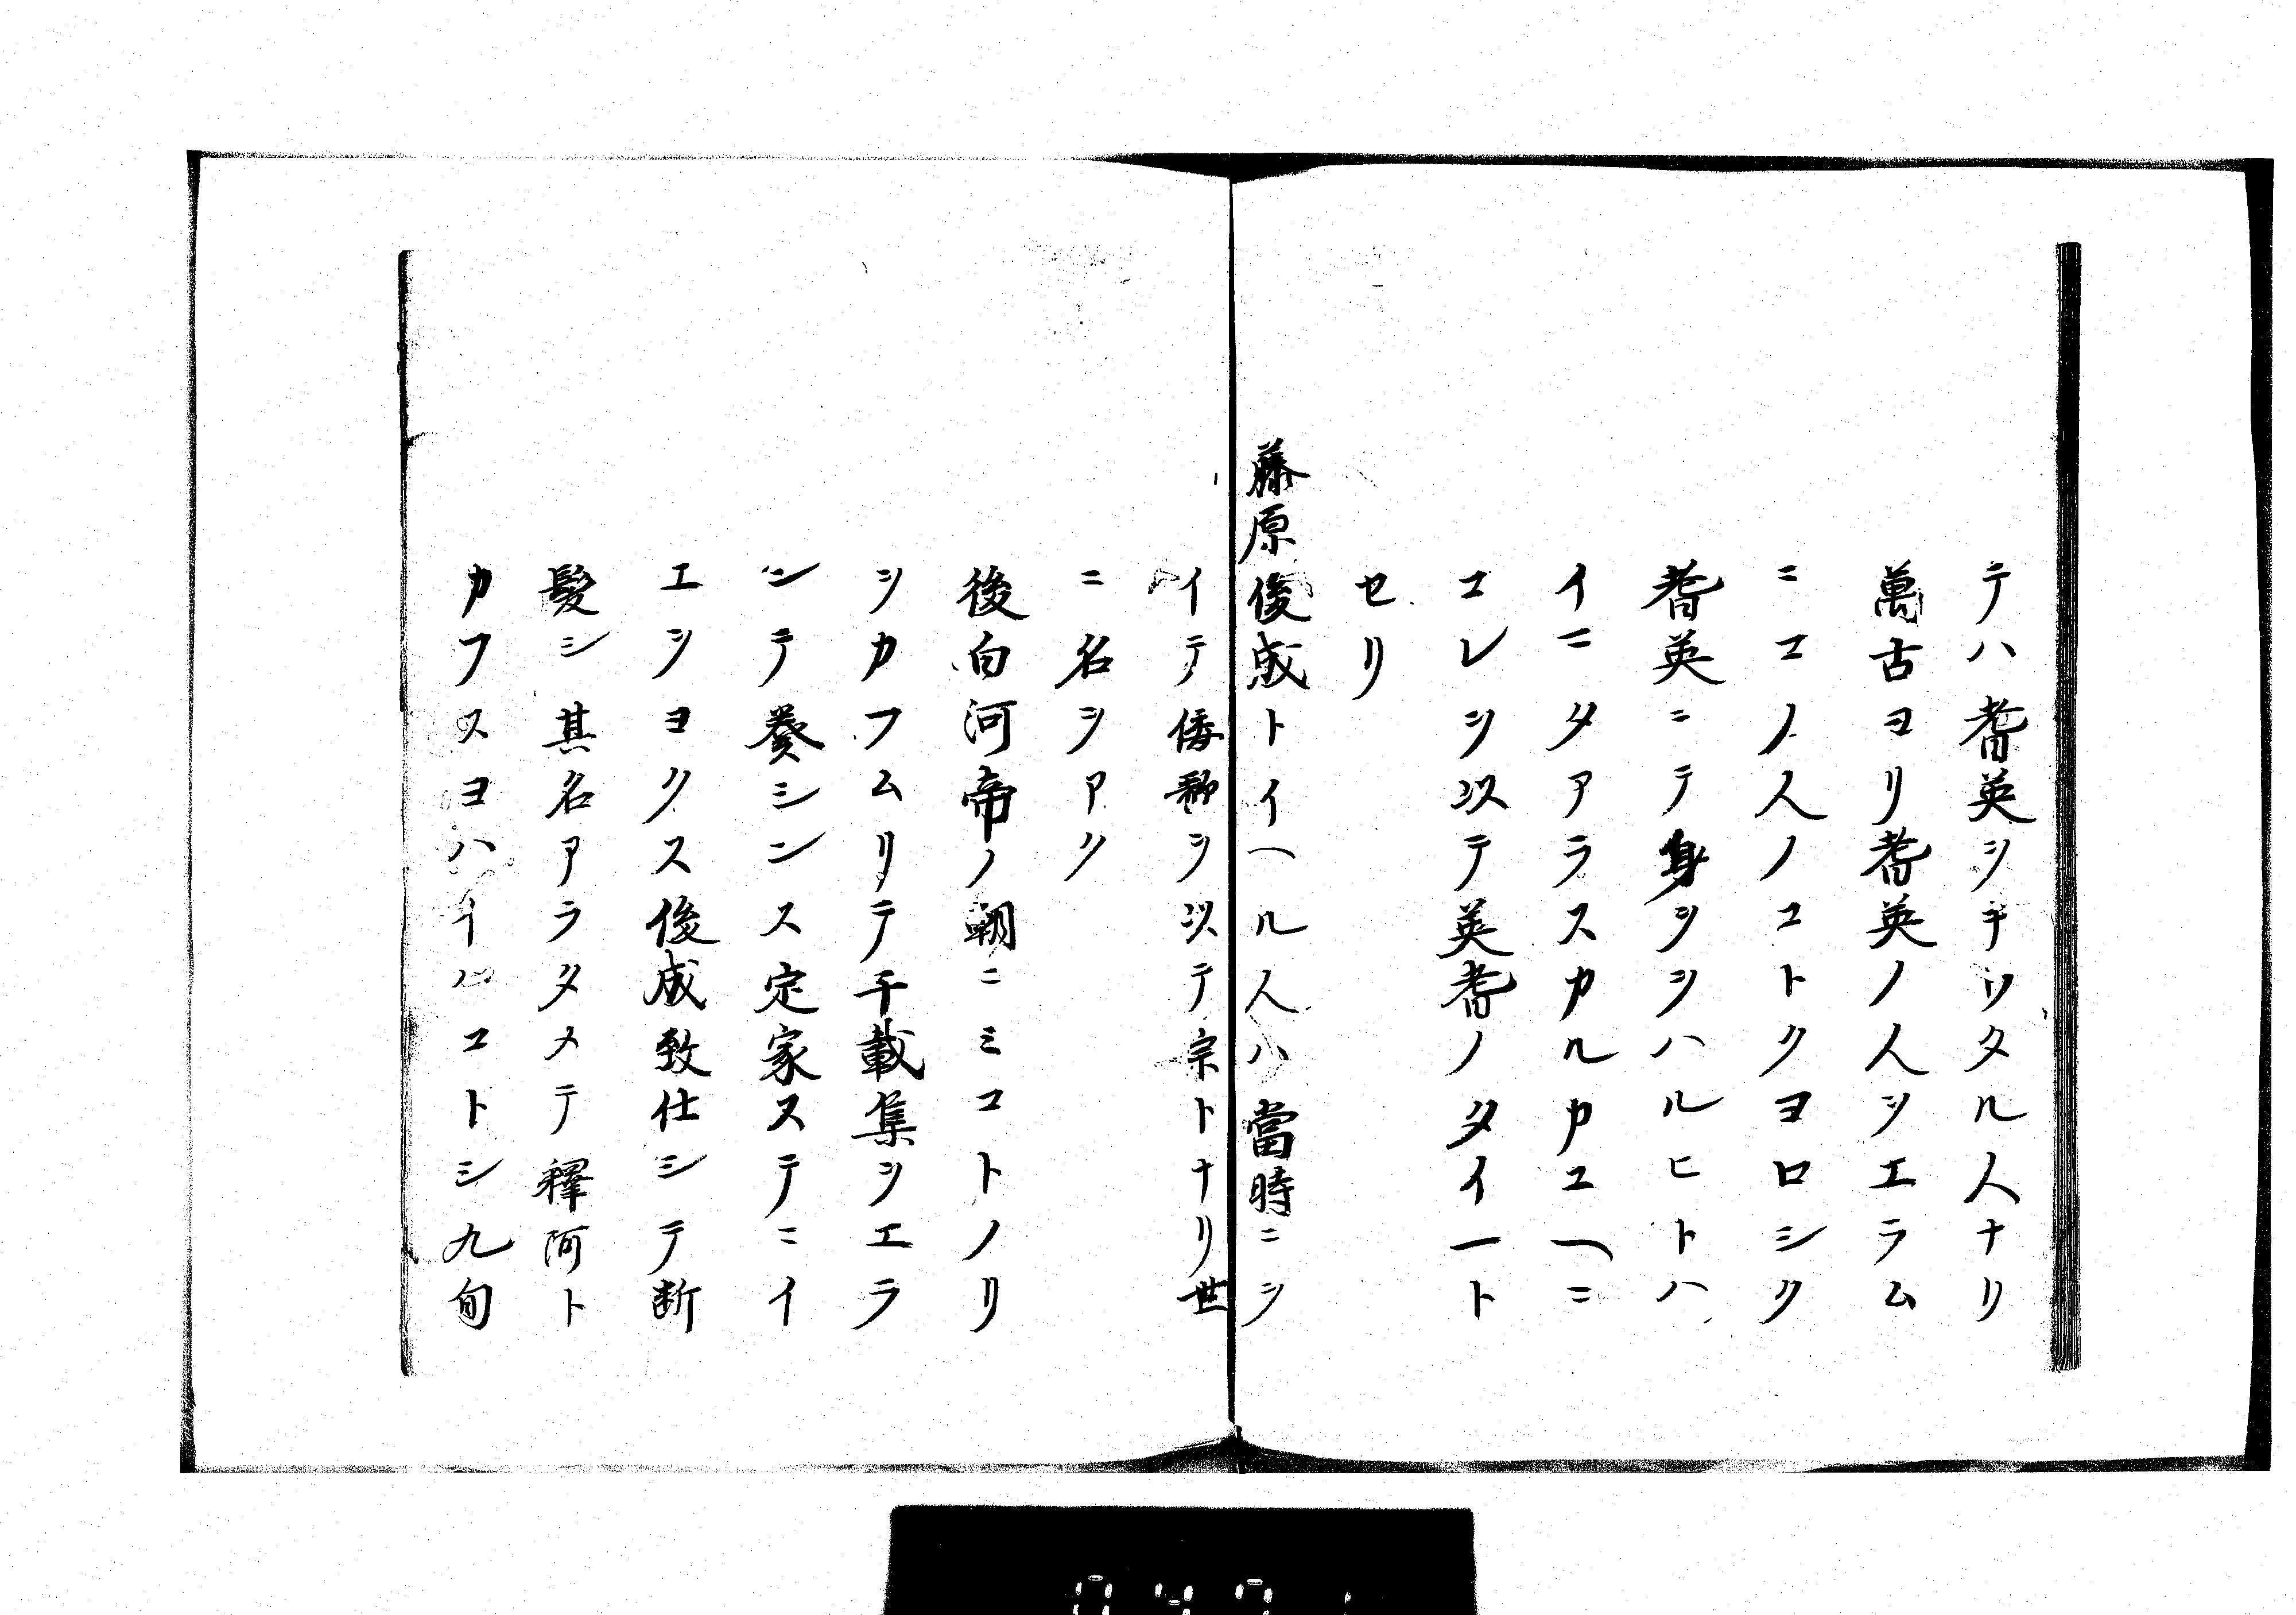 テハ耆英ヲキワタル人ナリ
萬古ヨリ耆英ノ人ヲエラム
ニコノ人ノコトクヨロシク
耆英ニテ身ヲヲハルヒトハ
イニタアラスカルカユヘニ
コレヲ以テ英耆ノタイート
セリ
藤原俊成トイヘル人ハ當時ニヲ
イテ倭歌ヲ以テ宗トナリ世
ニ名ヲアク
後白河帝ノ朝ニミコトノリ
ヲカフムリテ千載集ヲエラ
ンテ奏シンス定家ステニイ
エヲヨクス俊成致仕シテ断
髪シ其名アラタメテ釋阿ト
カフスヨハイハコトシ九旬